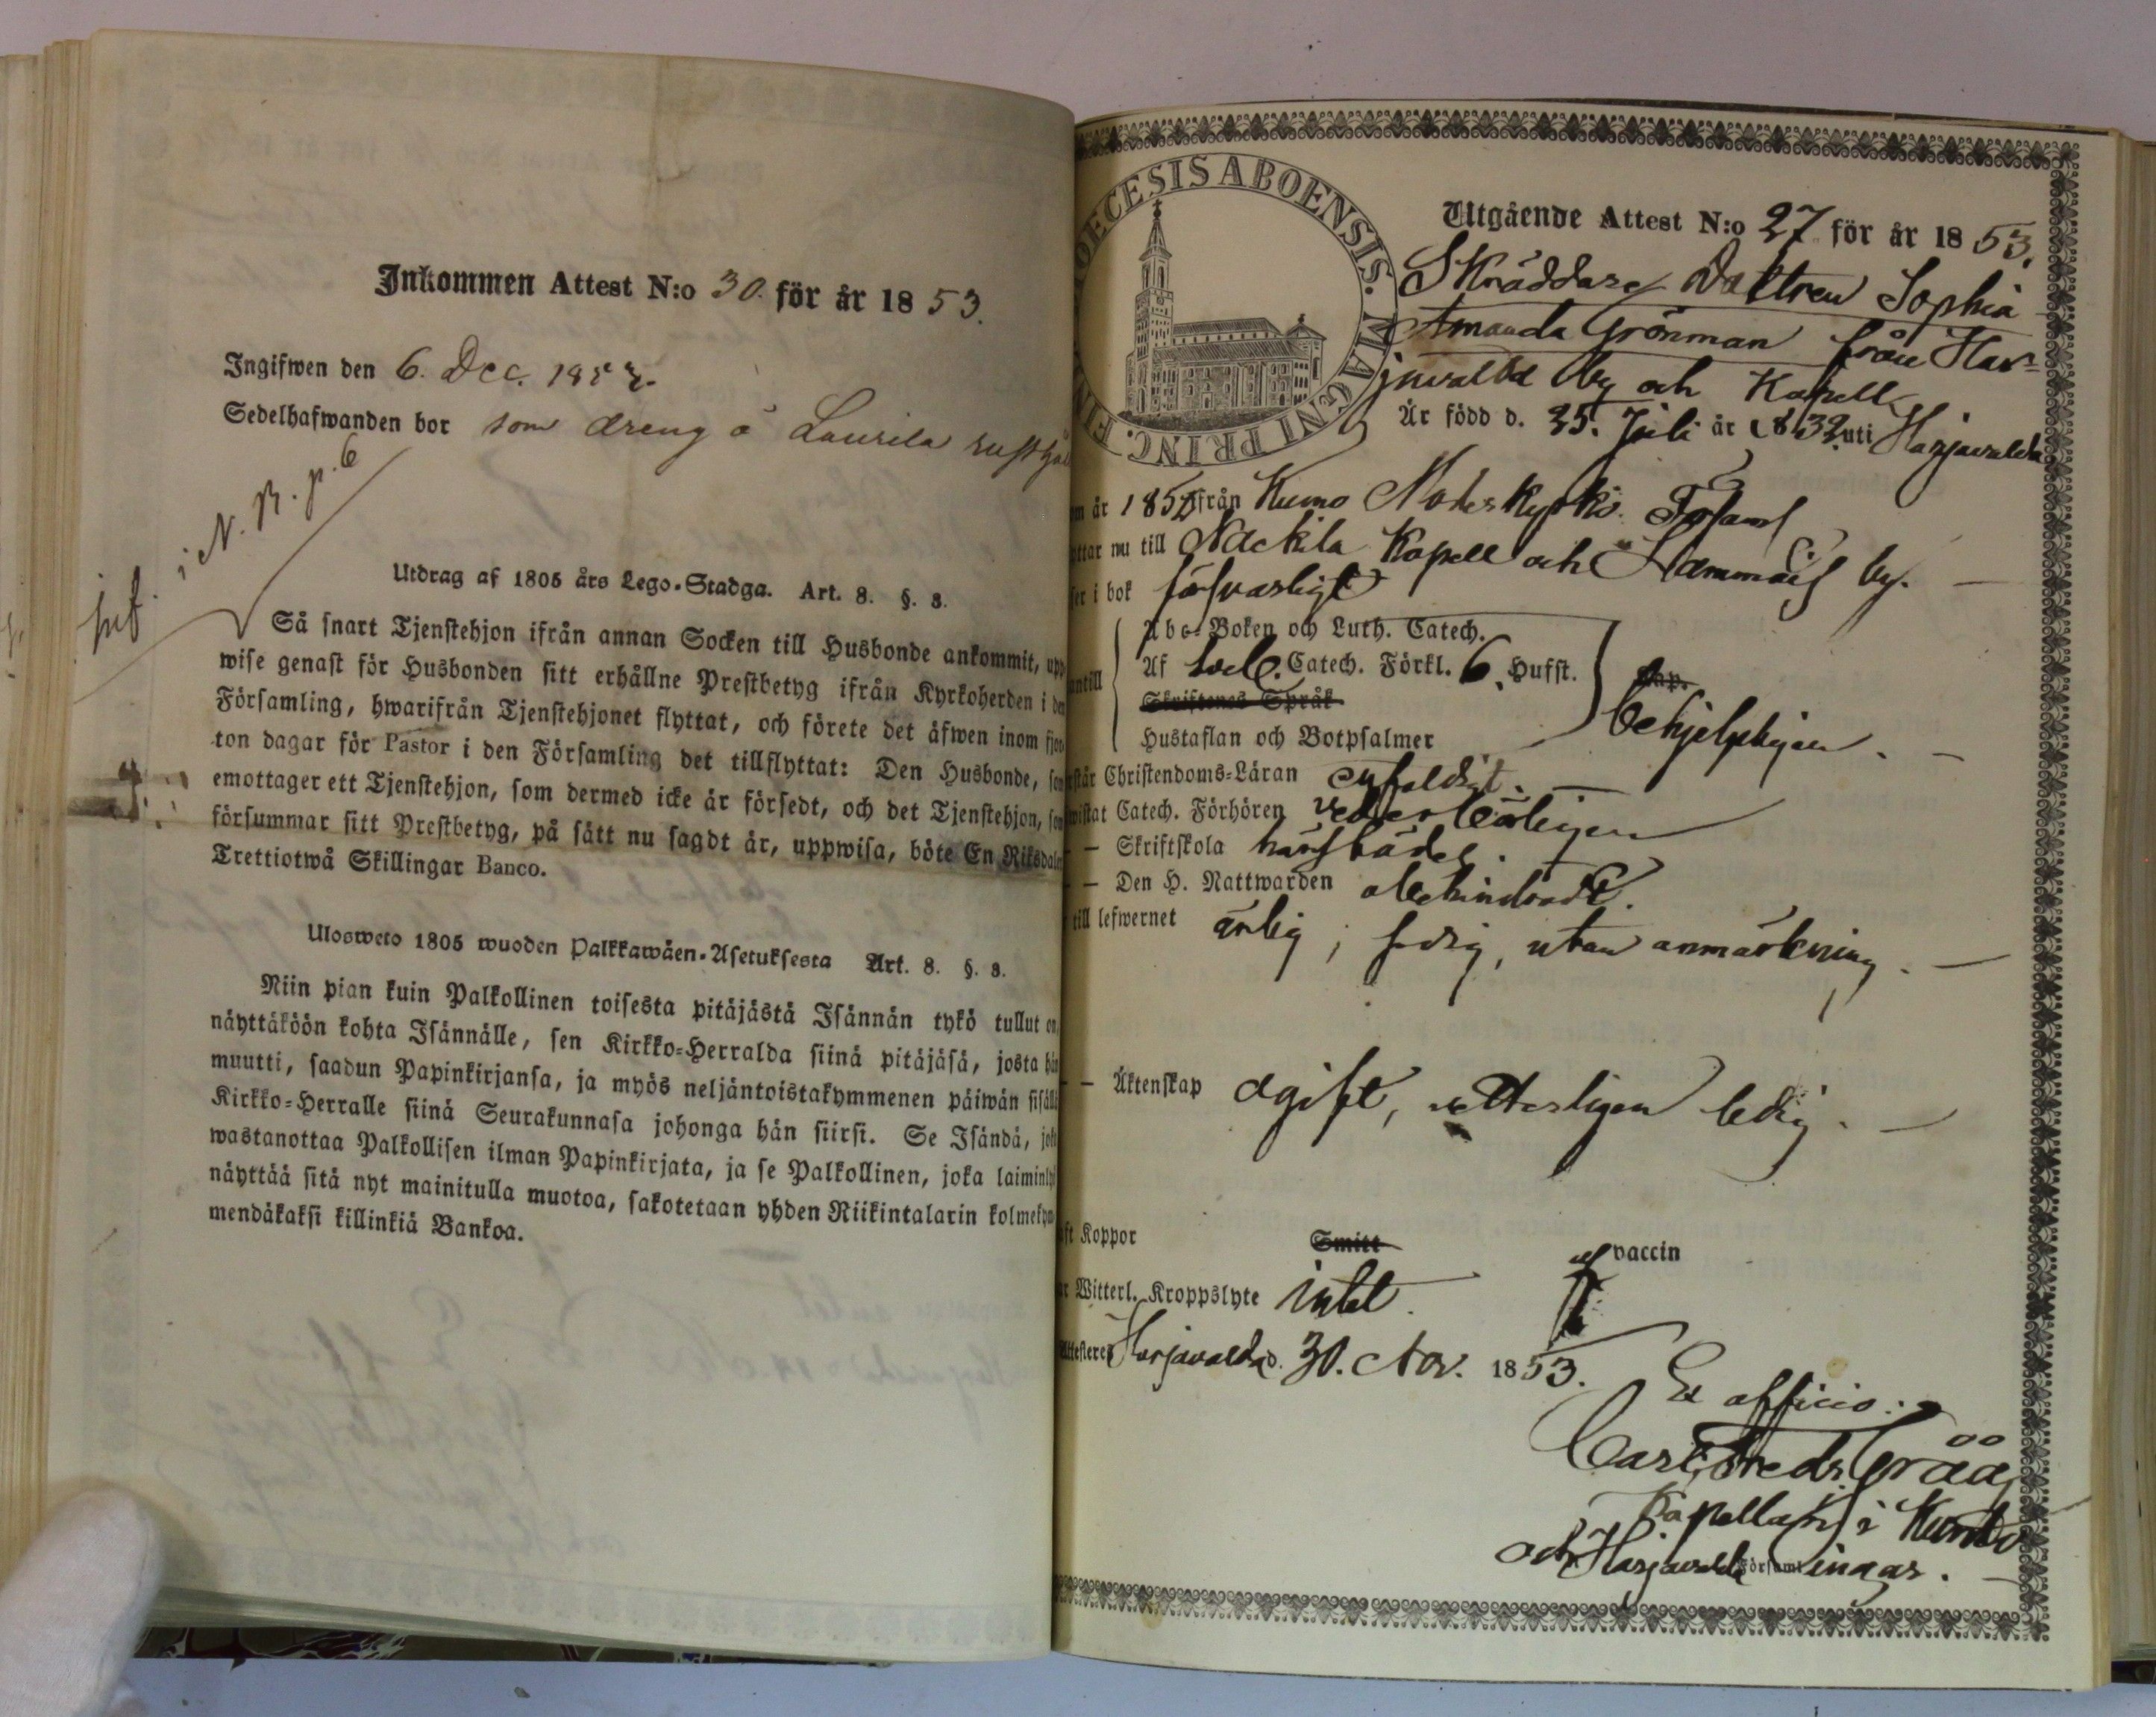 Inkommen Attest N:o 30. för år 1853.
Ingifwen den 6. Dec. 1853.
Sedelhafwanden bor som dreng å Laurila rusthåll
i N. B. p. 6
inf.
Utdrag af 1805 års Lego-Stadga. Art. 8. §. 3.
Så snart Tjenstehjon ifrån annan Socken till Husbonde ankommit, upp
wise genast för Husbonden sitt erhållne Prestbetyg ifrån Kyrkoherden i den
Församling, hwarifrån Tjenstehjonet flyttat, och förete det äfwen inom fjor-
ton dagar för Pastor i den Församling det tillflyttat: Den Husbonde, som
emottager ett Tjenstehjon, som dermed icke är försedt, och det Tjenstehjon, som
försummar sitt Prestbetyg, på sätt nu sagdt är, uppwisa, böte En Riksdaler
Trettiotwå Skillingar Banco.
Ulosweto 1805 wuoden Palkkawäen-Asetuksesta Art. 8. §. 3.
Niin pian kuin Palkollinen toisesta pitäjästä Isännän tykö tullut on,
näyttäköön kohta Isännälle, sen Kirkko-Herralda siinä pitäjäsä, josta hän
muutti, saadun Papinkirjansa, ja myös neljäntoistakymmenen päiwän sisällä
Kirkko-Herralle siinä Seurakunnasa johonga hän siirsi. Se Isändä, joka
wastanottaa Palkollisen ilman Papinkirjata, ja se Palkollinen, joka laiminlyö
näyttää sitä nyt mainitulla muotoa, sakotetaan yhden Riikintalarin kolmekym-
mendäkaksi killinkiä Bankoa.
DIOECESIS ABOENSIS. MAGNI PRINC. FIN
Utgående Attest N:o 27 för år 1853.
Skräddare Dottren Sophia
Amanda Grönman från Har-
javalda by och Kapell
Är född d. 25. Juli år 1832 uti Harjavalda
om år 1850 från Kumo Moderkyrko Församl
yttar nu till Nackila Kapell och Hammais by.
ser i bok försvarligt
antill
Abc-Boken och Luth. Catech.
Af Luth. Catech. Förkl. 6. Hufst.
Skriftenes Språk
Hustaflan och Botpsalmer
Cap.
behjelpligen.
rstår Christendoms-Läran enfaldigt.
wistat Catech. Förhören vederbörligen
— Skriftskola
— Den H. Nattwarden obehindrad.
till lefwernet ärlig, fredig, utan anmärkning.
— Äktenskap ogift, vetterligen ledig.
aft Koppor Smitt af vaccin
ar Witterl. Kroppslyte intet.
Attesteres Harjavalda d. 30. Nov. 1853.
Ex officio:
Carl Fredr. Gråå
Kapellan i Kumo
och Harjavalda Församlingar.